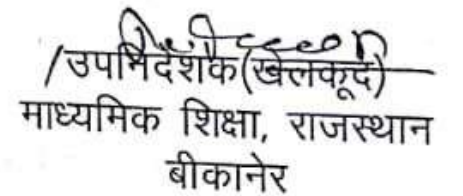 /उपनिदेशक(खेलकूद)
माध्यमिक शिक्षा, राजस्थान
बीकानेर